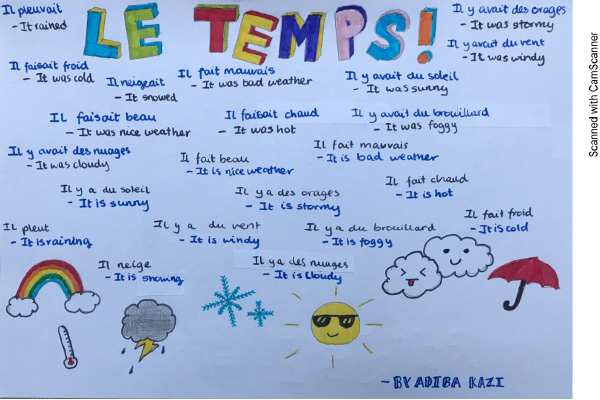 LE TEMPS!
Il pleuvait
- It rained
Il y avait des orages
- It was stormy
Il y avait du vent
- It was windy
Il faisait froid
- It was cold
Il neigeait
- It snowed
Il fait mauvais
- It was bad weather
Il y avait du soleil
- It was sunny
Il faisait beau
- It was nice weather
Il faisait chaud
- It was hot
Il y avait du brouillard
- It was foggy
Il y avait des nuages
- It was cloudy
Il fait beau
- It is nice weather
Il fait mauvais
- It is bad weather
Il y a du soleil
- It is sunny
Il y a des orages
- It is stormy
Il fait chaud
- It is hot
Il pleut
- It is raining
Il y a du vent
- It is windy
Il y a du brouillard
- It is foggy
Il fait froid
- It is cold
Il neige
- It is snowing
Il y a des nuages
- It is cloudy
- BY ADIBA KAZI
Scanned with CamScanner